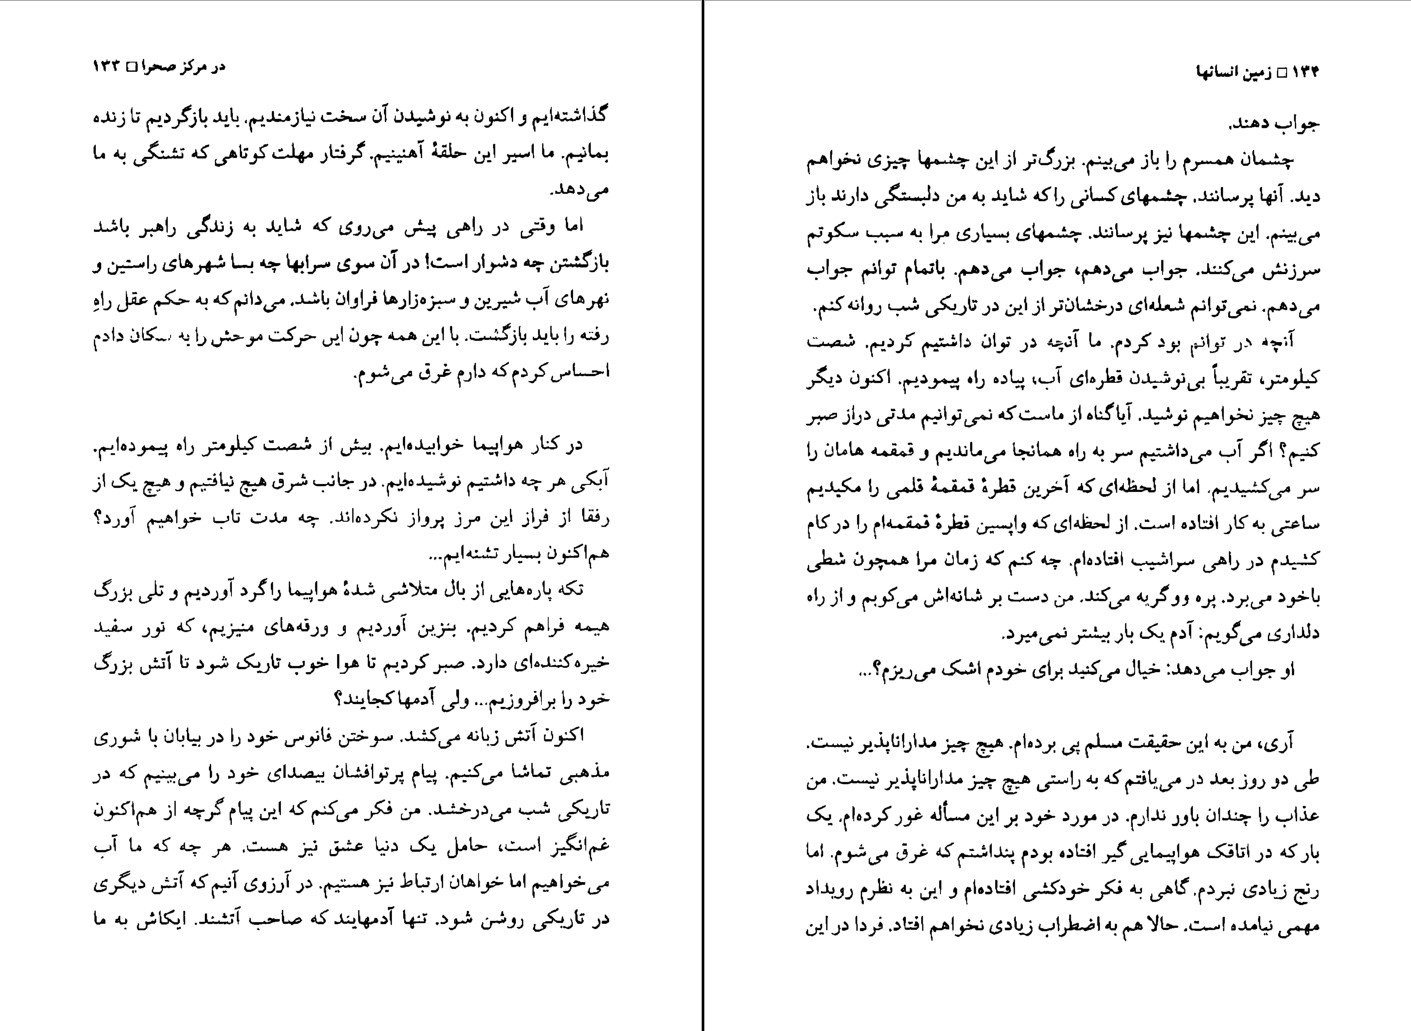 در مرکز صحرا □ ۱۳۳
گذاشته‌ایم و اکنون به نوشیدن آن سخت نیازمندیم. باید بازگردیم تا زنده
بمانیم. ما اسیر این حلقهٔ آهنینیم. گرفتار مهلت کوتاهی که تشنگی به ما
می‌دهد.
اما وقتی در راهی پیش می‌روی که شاید به زندگی راهبر باشد
بازگشتن چه دشوار است! در آن سوی سرابها چه بسا شهرهای راستین و
نهرهای آب شیرین و سبزه‌زارها فراوان باشد. می‌دانم که به حکم عقل راهِ
رفته را باید بازگشت. با این همه چون این حرکت موحش را به سکان دادم
احساس کردم که دارم غرق می‌شوم.
در کنار هواپیما خوابیده‌ایم. بیش از شصت کیلومتر راه پیموده‌ایم.
آبکی هر چه داشتیم نوشیده‌ایم. در جانب شرق هیچ نیافتیم و هیچ یک از
رفقا از فراز این مرز پرواز نکرده‌اند. چه مدت تاب خواهیم آورد؟
هم‌اکنون بسیار تشنه‌ایم...
تکه پاره‌هایی از بال متلاشی شدهٔ هواپیما را گرد آوردیم و تلی بزرگ
هیمه فراهم کردیم. بنزین آوردیم و ورقه‌های منیزیم، که نور سفید
خیره‌کننده‌ای دارد. صبر کردیم تا هوا خوب تاریک شود تا آتش بزرگ
خود را برافروزیم... ولی آدمها کجایند؟
اکنون آتش زبانه می‌کشد. سوختن فانوس خود را در بیابان با شوری
مذهبی تماشا می‌کنیم. پیام پرتوافشان بیصدای خود را می‌بینیم که در
تاریکی شب می‌درخشد. من فکر می‌کنم که این پیام گرچه از هم‌اکنون
غم‌انگیز است، حامل یک دنیا عشق نیز هست. هر چه که ما آب
می‌خواهیم اما خواهان ارتباط نیز هستیم. در آرزوی آنیم که آتش دیگری
در تاریکی روشن شود. تنها آدمهایند که صاحب آتشند. ایکاش به ما
۱۳۴ □ زمین انسانها
جواب دهند.
چشمان همسرم را باز می‌بینم. بزرگ‌تر از این چشمها چیزی نخواهم
دید. آنها پرسانند. چشمهای کسانی را که شاید به من دلبستگی دارند باز
می‌بینم. این چشمها نیز پرسانند. چشمهای بسیاری مرا به سبب سکوتم
سرزنش می‌کنند. جواب می‌دهم، جواب می‌دهم. باتمام توانم جواب
می‌دهم. نمی‌توانم شعله‌ای درخشان‌تر از این در تاریکی شب روانه کنم.
آنچه در توانم بود کردم. ما آنچه در توان داشتیم کردیم. شصت
کیلومتر، تقریباً بی‌نوشیدن قطره‌ای آب، پیاده راه پیمودیم. اکنون دیگر
هیچ چیز نخواهیم نوشید. آیا گناه از ماست که نمی‌توانیم مدتی دراز صبر
کنیم؟ اگر آب می‌داشتیم سر به راه همانجا می‌ماندیم و قمقمه هامان را
سر می‌کشیدیم. اما از لحظه‌ای که آخرین قطرهٔ قمقمهٔ قلمی را مکیدیم
ساعتی به کار افتاده است. از لحظه‌ای که واپسین قطرهٔ قمقمه‌ام را در کام
کشیدم در راهی سراشیب افتاده‌ام. چه کنم که زمان مرا همچون شطی
باخود می‌برد. پره وو گریه می‌کند. من دست بر شانه‌اش می‌کوبم و از راه
دلداری می‌گویم: آدم یک بار بیشتر نمی‌میرد.
او جواب می‌دهد: خیال می‌کنید برای خودم اشک می‌ریزم؟...
آری، من به این حقیقت مسلم پی برده‌ام. هیچ چیز مداراناپذیر نیست.
طی دو روز بعد در می‌یافتم که به راستی هیچ چیز مداراناپذیر نیست. من
عذاب را چندان باور ندارم. در مورد خود بر این مسأله غور کرده‌ام. یک
بار که در اتاقک هواپیمایی گیر افتاده بودم پنداشتم که غرق می‌شوم. اما
رنج زیادی نبردم. گاهی به فکر خودکشی افتاده‌ام و این به نظرم رویداد
مهمی نیامده است. حالا هم به اضطراب زیادی نخواهم افتاد. فردا در این